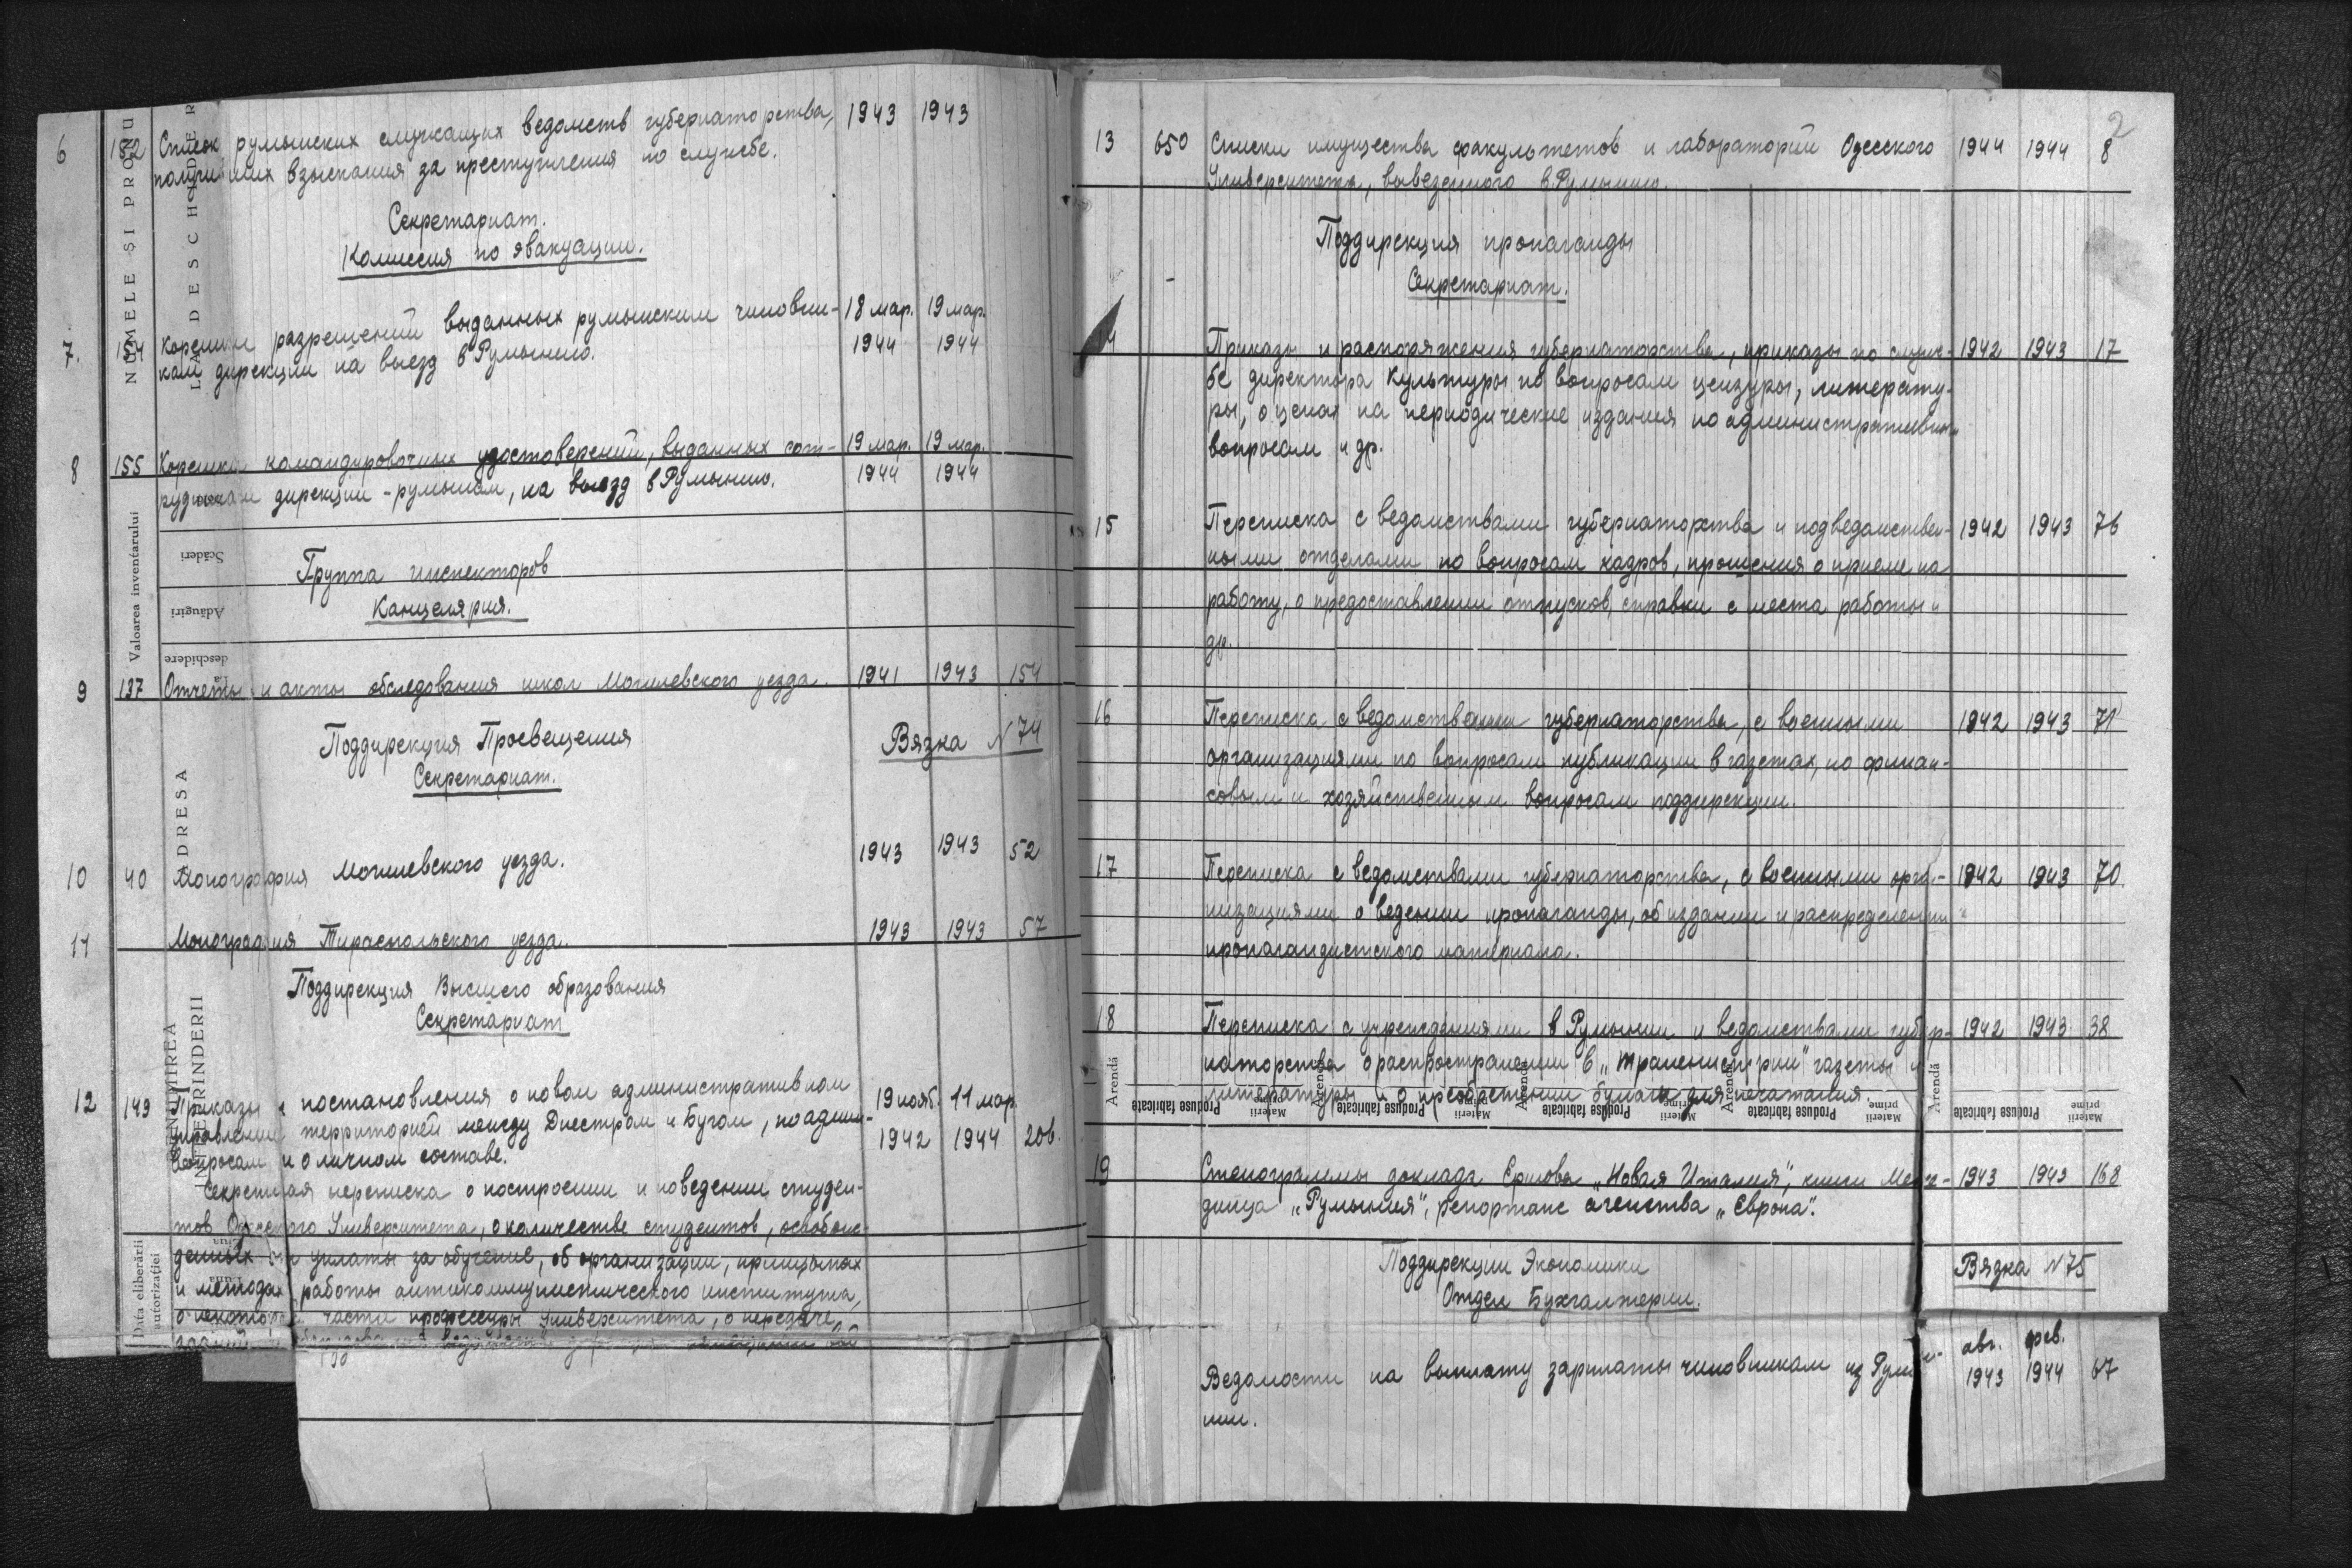 6 152 Список румынских служащих ведомств губернаторства, 1943 1943
получивших взыскания за преступления по службе.
Секретариат.
Комиссия по эвакуации.
7. 154 Корешки разрешений выданных румынским чиновни- 18 мар. 19 мар.
кам дирекции на выезд в Румынию. 1944 1944
8 155 Корешки командировочных удостоверений, выданных сот- 19 мар. 19 мар.
рудникам дирекции - румынам, на выезд в Румынию. 1944 1944
Группа инспекторов
Канцелярия.
9 137 Отчеты и акты обследования школ Могилевского уезда. 1941 1943 154
Поддирекция Просвещения Вязка N 74
Секретариат.
10 40 Монография Могилевского уезда. 1943 1943 52
11 Монография Тираспольского уезда. 1943 1943 57
Поддирекция Высшего образования
Секретариат
12 149 Приказы и постановления о новом административном 19 нояб. 11 мар.
управлении территорией между Днестром и Бугом, по админ- 1942 1944 206.
вопросам и о личном составе.
Секретная переписка о построении и поведении студен-
тов Одесского Университета, о количестве студентов, освобож-
денных от уплаты за обучение, об организации, принципах
и методах работы антикоммунистического института,
о некоторой части профессуры Университета, о передаче
NUMELE ȘI PRONU
LA DESCHIDER
Valoarea inventarului
Scăderi
Adăugiri
La deschidere
ADRESA
DENUMIREA
INTREPRINDERII
Data eliberării
autorizației
Ziua
Luna
2
13 650 Списки имущества факультетов и лабораторий Одесского 1944 1944 8
Университета, вывезенного в Румынию.
Поддирекция пропаганды
Секретариат.
14 Приказы и распоряжения губернаторства, приказы по служ- 1942 1943 17
бе директора культуры по вопросам цензуры, литерату-
ры, о ценах на периодические издания по административным
вопросам и др.
15 Переписка с ведомствами губернаторства и подведомствен- 1942 1943 76
ными отделами по вопросам кадров, прошения о приеме на
работу, о предоставлении отпусков, справки с места работы и
др.
16 Переписка с ведомствами губернаторства, с военными 1942 1943 71
организациями по вопросам публикации в газетах, по финан-
совым и хозяйственным вопросам поддирекции.
17 Переписка с ведомствами губернаторства, с военными орга- 1942 1943 70.
низациями о ведении пропаганды, об издании и распределении
пропагандистского материала.
18 Переписка с учреждениями в Румынии и ведомствами губер- 1942 1943 38
наторства о распространении в „Транснистрии" газеты и
литературы и о преобретении бумаги для печатания.
Arendă Arendă Arendă Arendă Arendă
Produse fabricate Materii prime Produse fabricate Materii prime Produse fabricate Materii prime Produse fabricate Materii prime Produse fabricate Materii prime
19 Стенограммы доклада Ершова „Новая Италия", книги 1943 1943 168
„Румыния", репортаж агенства „Европа".
Поддирекции Экономики Вязка N 75
Отдел Бухгалтерии.
авг. фев.
Ведомости на выплату зарплаты чиновникам из Румы- 1943 1944 67
нии.